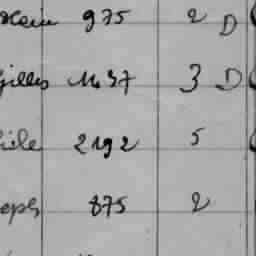 975 2 D
gilles 1437 3 D
2192 5
eph 875 2